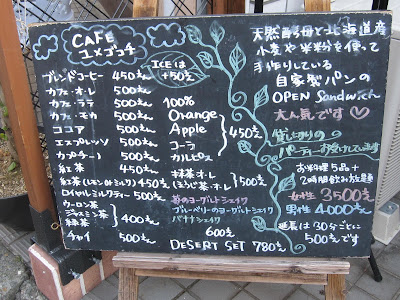 CAFE
ユメゴコチ
ブレンドコーヒー 450えん
カフェ・オ・レ 500えん
カフェ・ラテ 500えん
カフェ・モカ 500えん
ココア 500えん
エスプレッソ 500えん
カプチーノ 500えん
紅茶 450えん
紅茶(レモンorミルク) 450えん
ロイヤルミルクティー 500えん
ウーロン茶
ジャスミン茶
緑茶
400えん
チャイ 500えん
ICEは
+50えん
100%
Orange
Apple
コーラ
カルピス
450えん
抹茶オ・レ
ほうじ茶オ・レ
500えん
苺のヨーグルトシェイク
ブルーベリーのヨーグルトシェイク
バナナシェイク
600えん
DESERT SET 780えん
天然酵母と北海道産
小麦や米粉を使って
手作りしている
自家製パンの
OPEN Sandwich
大人気です♡
貸し切りの
パーティーお受けしています
お料理5品+
2時間飲み放題
女性 3500えん
男性 4000えん
延長は30分ごとに
500えんです